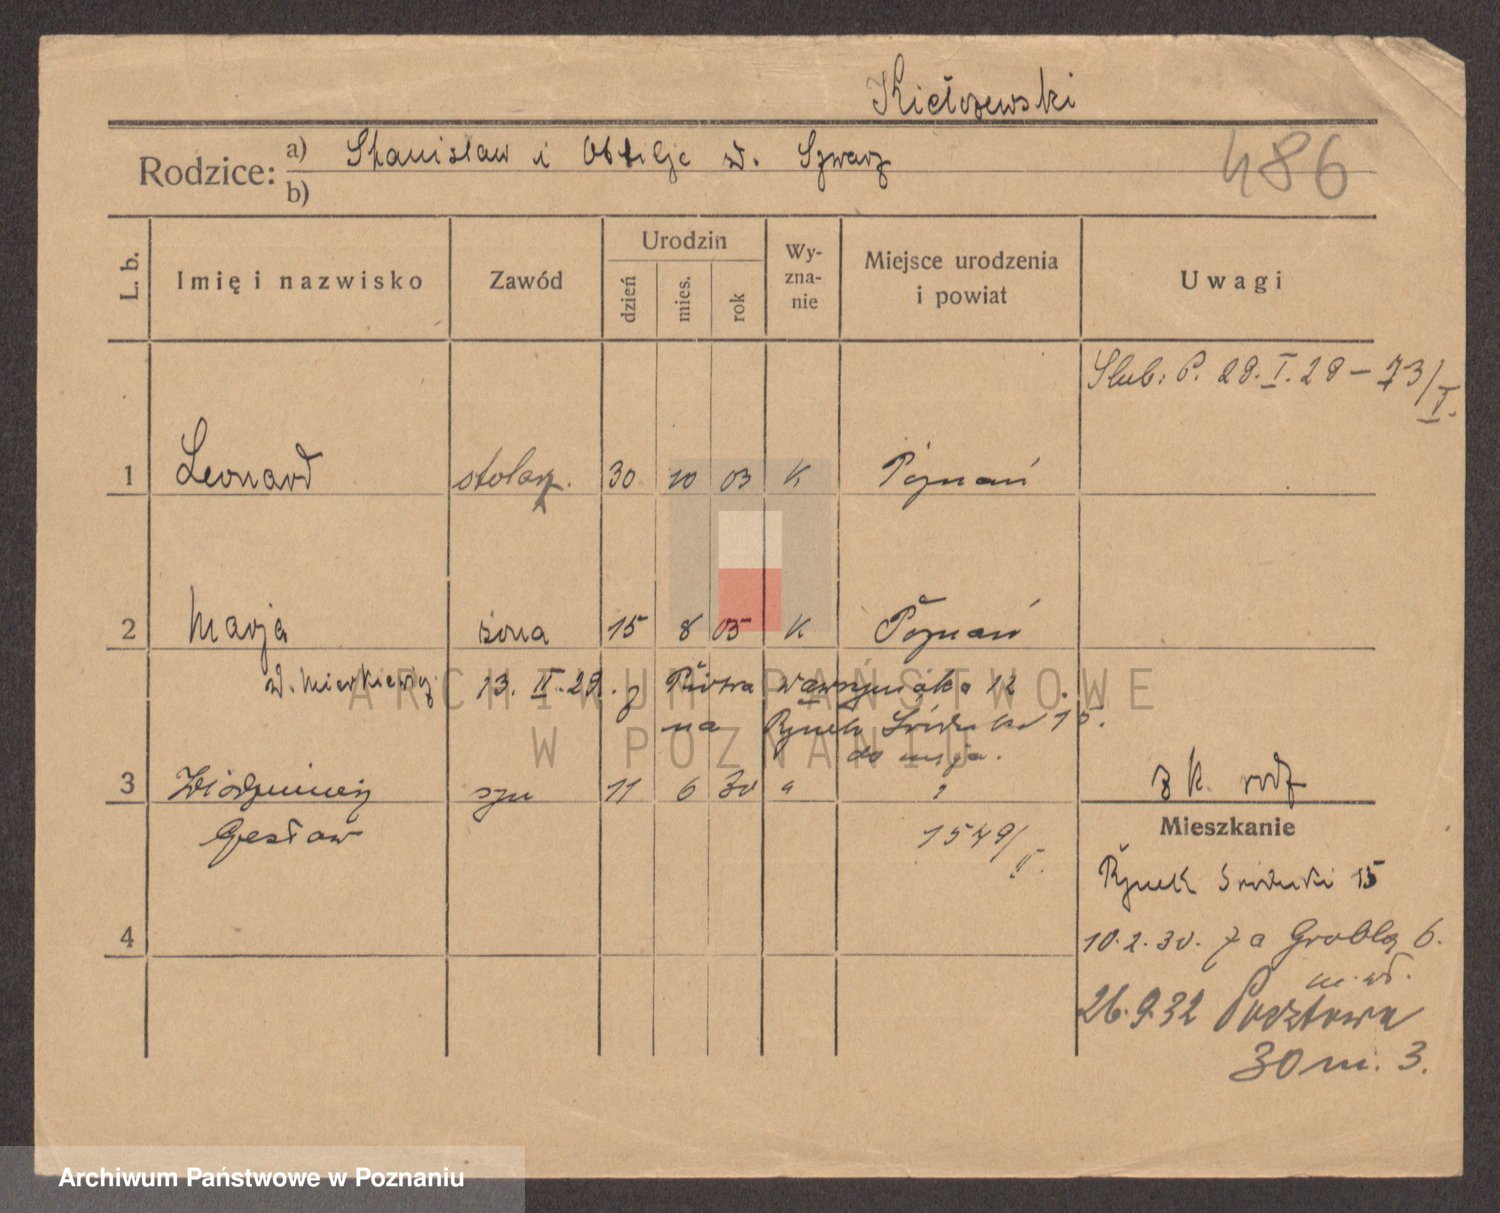 Kiełczewski
Rodzice: a) Stanisław i Otylje z d. Szwarz
b)
486
L. b.
Imię i nazwisko
Zawód
Urodzin
dzień
mies.
rok
Wy-
zna-
nie
Miejsce urodzenia
i powiat
Uwagi
Ślub: P. 28. I. 28 – 73/I.
1 Leonard stolarz. 30 10 03 K Poznań
2 Marja żona 15 8 05 K Poznań
13. II. 29. z Piotra Wawrzyniaka 12
na Rynek Śródecki 15.
do
3 Włodzimierz syn 11 6 30 " "
Czesław 1549/II.
z k. rodz
Mieszkanie
Rynek Śródecki 15
4
10.2.30. Za Groblą 6.
26.9.32 Pocztowa
30 m. 3.
ARCHIWUM PAŃSTWOWE
W POZNANIU
Archiwum Państwowe w Poznaniu